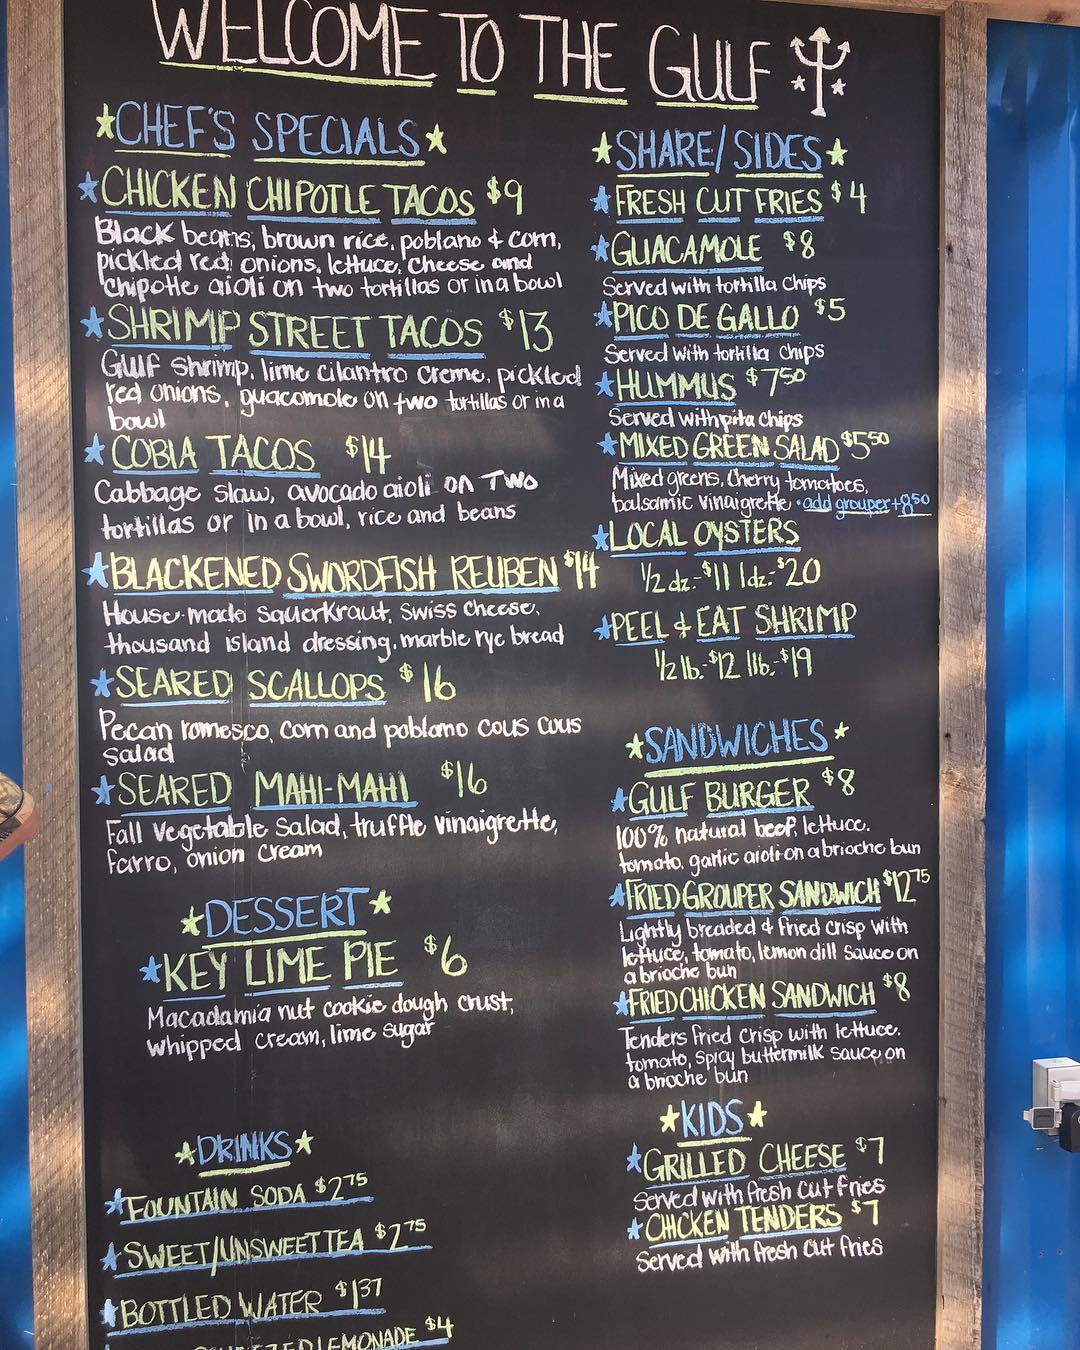 WELCOME TO THE GULF
CHEF'S SPECIALS
CHICKEN CHIPOTLE TACOS $9
Black beans, brown rice, poblano & corn,
pickled red onions, lettuce, cheese and
chipotle aioli on two tortillas or in a bowl
SHRIMP STREET TACOS $13
Gulf shrimp, lime cilantro creme, pickled
red onions, guacamole on two tortillas or in a
bowl
COBIA TACOS $14
Cabbage slaw, avocado aioli on Two
tortillas or in a bowl, rice and beans
BLACKENED SWORDFISH REUBEN $14
House-made sauerkraut, swiss cheese,
thousand island dressing, marble rye bread
SEARED SCALLOPS $16
Pecan romesco, corn and poblano cous cous
salad
SEARED MAHI-MAHI $16
Fall vegetable salad, truffle vinaigrette,
farro, onion cream
DESSERT
KEY LIME PIE $6
Macadamia nut cookie dough crust,
whipped cream, lime sugar
DRINKS
FOUNTAIN SODA $2.75
SWEET/UNSWEET TEA $2.75
BOTTLED WATER $1.37
LEMONADE $4
SHARE/SIDES
FRESH CUT FRIES $4
GUACAMOLE $8
Served with tortilla chips
PICO DE GALLO $5
Served with tortilla chips
HUMMUS $7.50
Served with pita chips
MIXED GREEN SALAD $5.50
Mixed greens, cherry tomatoes,
balsamic vinaigrette • add grouper +8.50
LOCAL OYSTERS
1/2 dz.-$11 1dz.-$20
PEEL & EAT SHRIMP
1/2 lb.-$12 1lb.-$19
SANDWICHES
GULF BURGER $8
100% natural beef, lettuce.
tomato, garlic aioli on a brioche bun
FRIED GROUPER SANDWICH $12.75
Lightly breaded & fried crisp with
lettuce, tomato, lemon dill sauce on
a brioche bun
FRIED CHICKEN SANDWICH $8
Tenders fried crisp with lettuce,
tomato, spicy buttermilk sauce on
a brioche bun
KIDS
GRILLED CHEESE $7
Served with fresh cut fries
CHCKEN TENDERS $7
Served with fresh cut fries